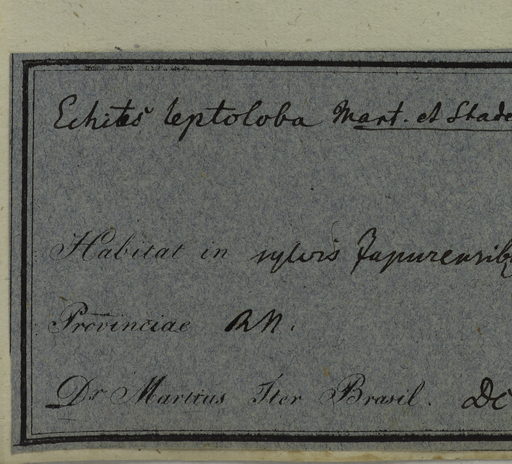 Echites leptoloba Mart. et Stade
Habitat in sylvis Japurensib
Provinciae R N.
Dr Martius Iter Brasil. DC